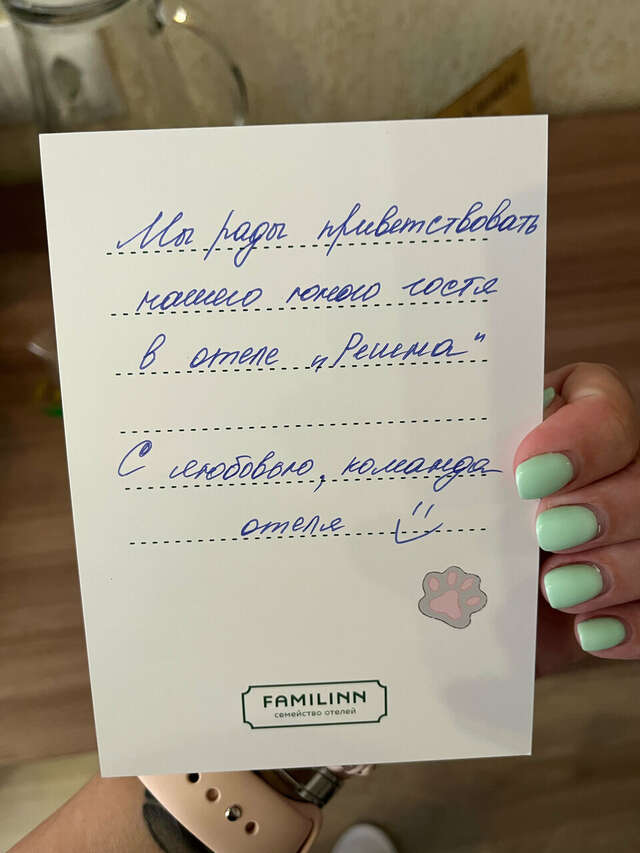 Мы рады приветствовать
нашего юного гостя
в отеле „Решма"
С любовью, команда
отеля
FAMILINN
семейство отелей